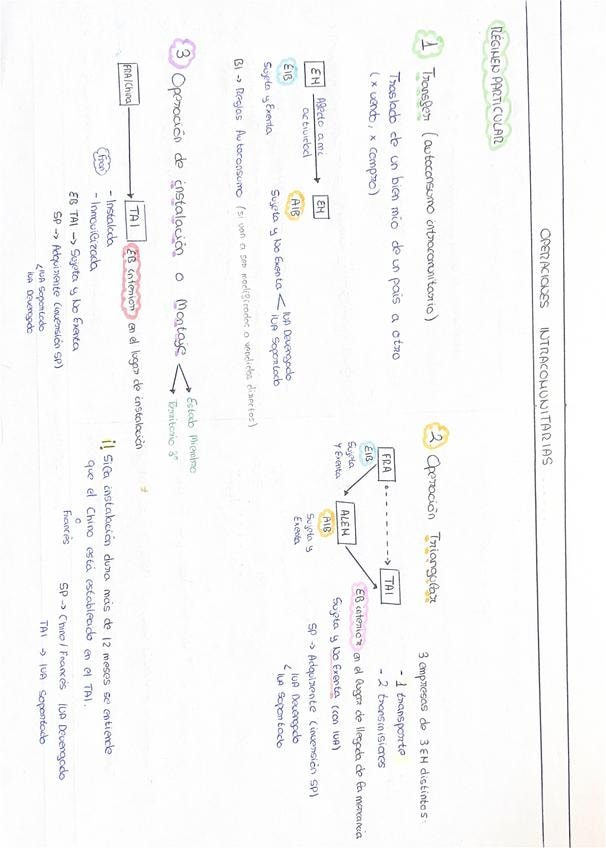 OPERACIONES INTRACOMUNITARIAS
RÉGIMEN PARTICULAR
1 Transfer (autoconsumo intracomunitario)
Traslado de un bien mio de un pais a otro
(x vendo, x compro)
EM
Afecto a mi
actividad
EM
EIB
Sujeta y Exenta
AIB
Sujeta y No Exenta < IVA Devengado
IVA Soportado
BI → Reglas Autoconsumo (si van a ser modificados o vendidos directos)
2 Operación Triangular
3 empresas de 3 EM distintos:
- 1 transporte
- 2 transmisiones
FRA
TAI
EIB
Sujeta
y Exenta
ALEM
AIB
Sujeta y
Exenta
EB interior en el lugar de llegada de la mercancia
Sujeta y No Exenta (con IVA)
SP → Adquirente (inversión SP)
< IVA Devengado
IVA Soportado
3 Operación de instalación o Montaje
Estado Miembro
Territorio 3º
FRA/China
TAI
EB interior en el lugar de instalación
- Instalada
- Inmovilizada
EB TAI → Sujeta y No Exenta
SP → Adquirente (inversión SP)
< IVA Soportado
IVA Devengado
¡! Si la instalación dura más de 12 meses se entiende
que el Chino está establecido en el TAI.
o
Francés
SP → Chino/Francés IVA Devengado
TAI → IVA Soportado